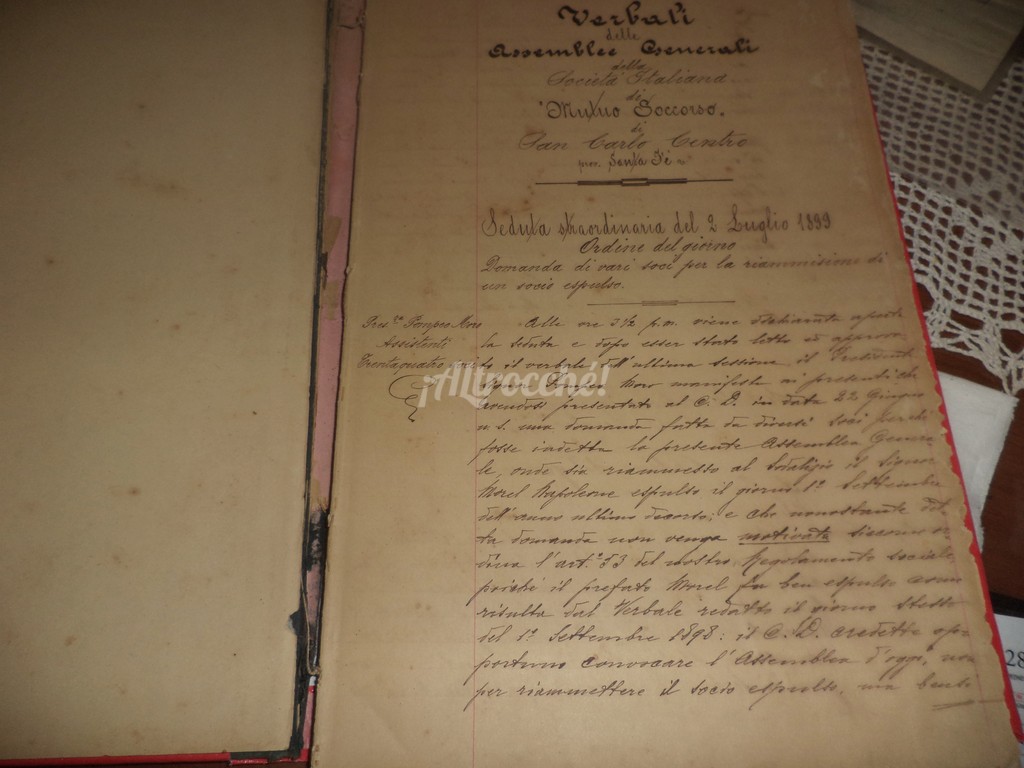 Verbali
delle
Assemblee Generali
della
Società Italiana
di
Mutuo Soccorso.
di
San Carlo Centro
prov. Santa Fè
Seduta straordinaria del 2 Luglio 1899
Ordine del giorno
Domanda di vari soci per la riammisione di
un socio espulso.
Pres.te Pompeo Moro
Assistenti
Trentaquattro soci
Alle ore 3½ p.m. viene dichiarata aperta
la seduta e dopo esser stato letto ed approva-
to il verbale dell'ultima sessione, il Presidente
Signor Pompeo Moro manifesta ai presenti che
avendosi presentato al C. D. in data 22 Giugno
u. s. una domanda fatta da diversi soci perchè
fosse indetta la presente Assemblea Genera-
le, onde sia riammesso al Sodalizio il Signor
Morel Napoleone espulso il giorno 1º Settembre
dell'anno ultimo decorso; e che nonostante det-
ta domanda non venga motivata siccome or-
dina l'art.º 53 del nostro Regolamento sociale
poichè il prefato Morel fu ben espulso come
risulta dal Verbale redatto il giorno stesso
del 1º Settembre 1898: il C. D. credette op-
portuno convocare l'Assemblea d'oggi, non
per riammettere il socio espulso, ma bensì
¡Altroccné!
28